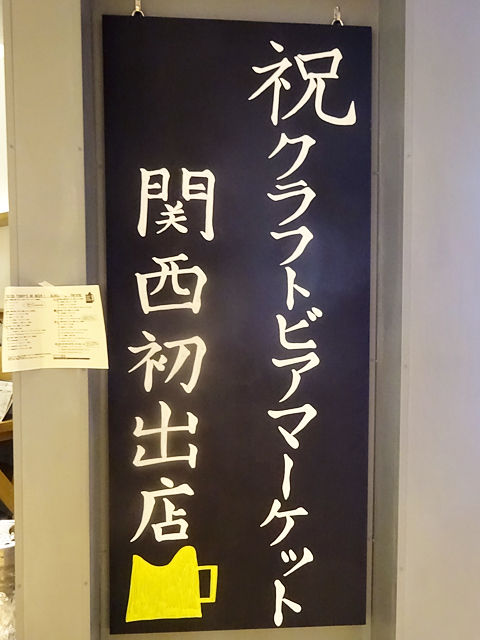 祝クラフトビアマーケット
関西初出店